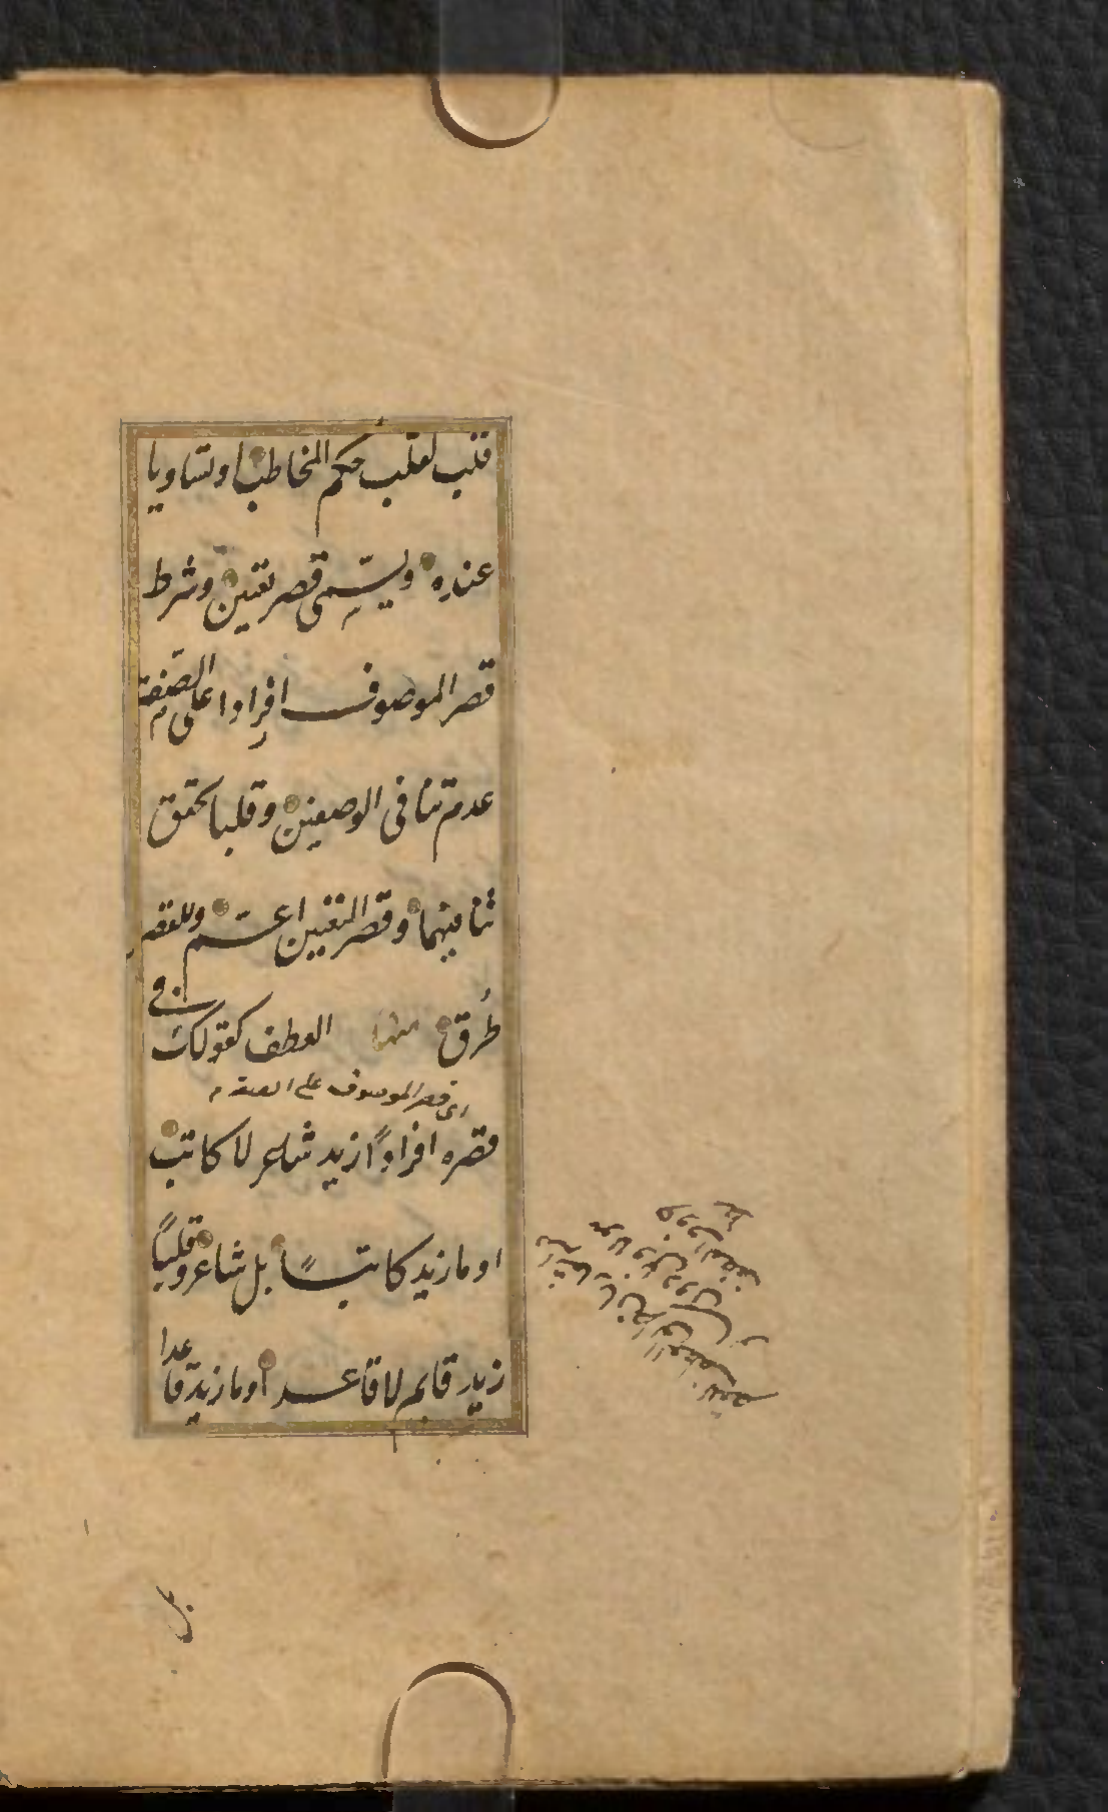 قلب لقلب حكم المخاطب او تساويا
عنده ويسمى قصر تعيين وشرط
قصر الموصوف على الصفة افرادا
عدم تنافى الوصفين وقلبا تحقق
تنافيهما وقصر التعيين اعم وللقصر
طرق منها العطف كقولك فى
اى قصر الموصوف على الصفة
قصره افرادًا زيد شاعر لا كاتب
او ما زيد كاتبًا بل شاعر وقلبًا
زيد قايم لا قاعد او ما زيد قاعدا
بل